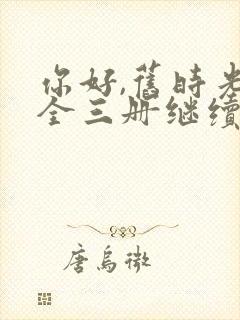 你好,舊時光
全三册继續
唐烏微